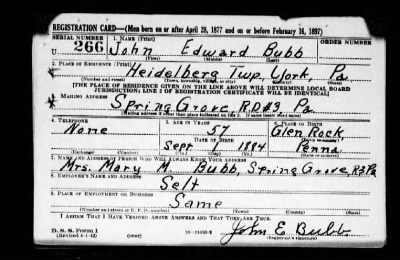 REGISTRATION CARD—(Men born on or after April 28, 1877 and on or before February 16, 1897)
SERIAL NUMBER 1. NAME (Print) ORDER NUMBER
U 266 John Edward Bubb
(First) (Middle) (Last)
2. PLACE OF RESIDENCE (Print)
Heidelberg Twp, York, Pa
(Number and street) (Town, township, village, or city) (County) (State)
[THE PLACE OF RESIDENCE GIVEN ON THE LINE ABOVE WILL DETERMINE LOCAL BOARD
JURISDICTION; LINE 2 OF REGISTRATION CERTIFICATE WILL BE IDENTICAL]
3. MAILING ADDRESS
Spring Grove, R.D#3, Pa
[Mailing address if other than place indicated on line 2. If same insert word same]
4. TELEPHONE 5. AGE IN YEARS 6. PLACE OF BIRTH
None 57 Glen Rock
DATE OF BIRTH (Town or county)
Sept 1884 Penna
(Exchange) (Number) (Mo.) (Day) (Yr.) (State or country)
7. NAME AND ADDRESS OF PERSON WHO WILL ALWAYS KNOW YOUR ADDRESS
Mrs. Mary M. Bubb, Spring Grove, R3 Pa
8. EMPLOYER'S NAME AND ADDRESS
Self
9. PLACE OF EMPLOYMENT OR BUSINESS
Same
(Number and street or R. F. D. number) (Town) (County) (State)
I AFFIRM THAT I HAVE VERIFIED ABOVE ANSWERS AND THAT THEY ARE TRUE.
D. S. S. Form 1 John E Bubb
(Revised 4-1-42) (over) (Registrant's signature)